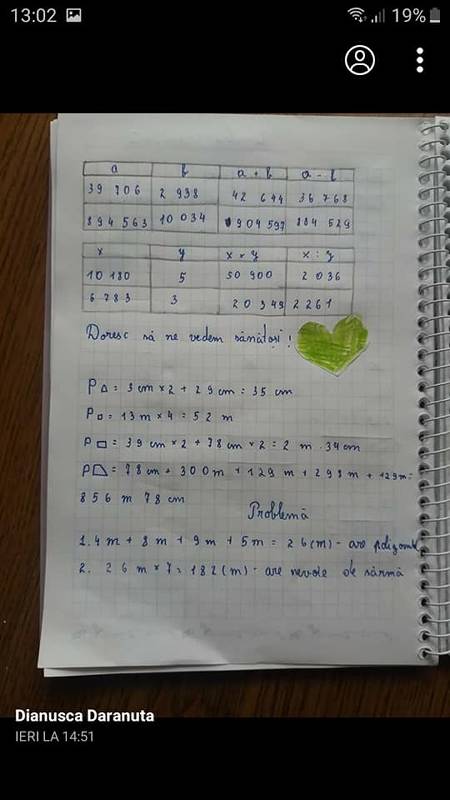 13:02 19%
a b a + b a - b
39 706 2 938 42 644 36 768
894 563 10 034 904 597 884 529
x y x × y x : y
10 180 5 50 900 2 036
6 783 3 20 349 2 261
Doresc să ne vedem sănătoși!
P△ = 3 cm × 2 + 29 cm = 35 cm
P□ = 13 m × 4 = 52 m
P▭ = 39 cm × 2 + 78 cm × 2 = 2 m 34 cm
P = 78 cm + 300 m + 129 m + 298 m + 129 m =
856 m 78 cm
Problemă
1. 4 m + 8 m + 9 m + 5 m = 26 (m) - are
2. 26 m × 7 = 182 (m) - are nevoie de sârmă
Dianusca Daranuta
IERI LA 14:51